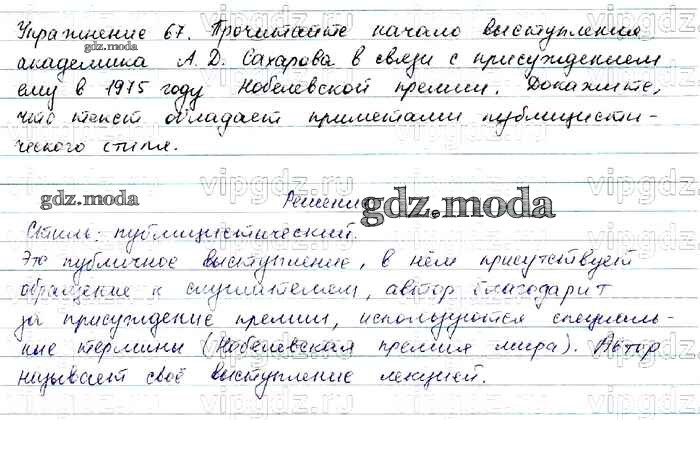 Упражнение 67. Прочитайте начало выступления
gdz.moda
академика А. Д. Сахарова в связи с присуждением
ему в 1975 году Нобелевской премии. Докажите,
что текст обладает приметами публицисти-
ческого стиля.
gdz.moda
Решение
gdz.moda
Стиль: публицистический.
Это публичное выступление, в нём присутствует
обращение к слушателям, автор благодарит
за присуждение премии, используются специаль-
ные термины (Нобелевская премия мира). Автор
называет своё выступление лекцией.